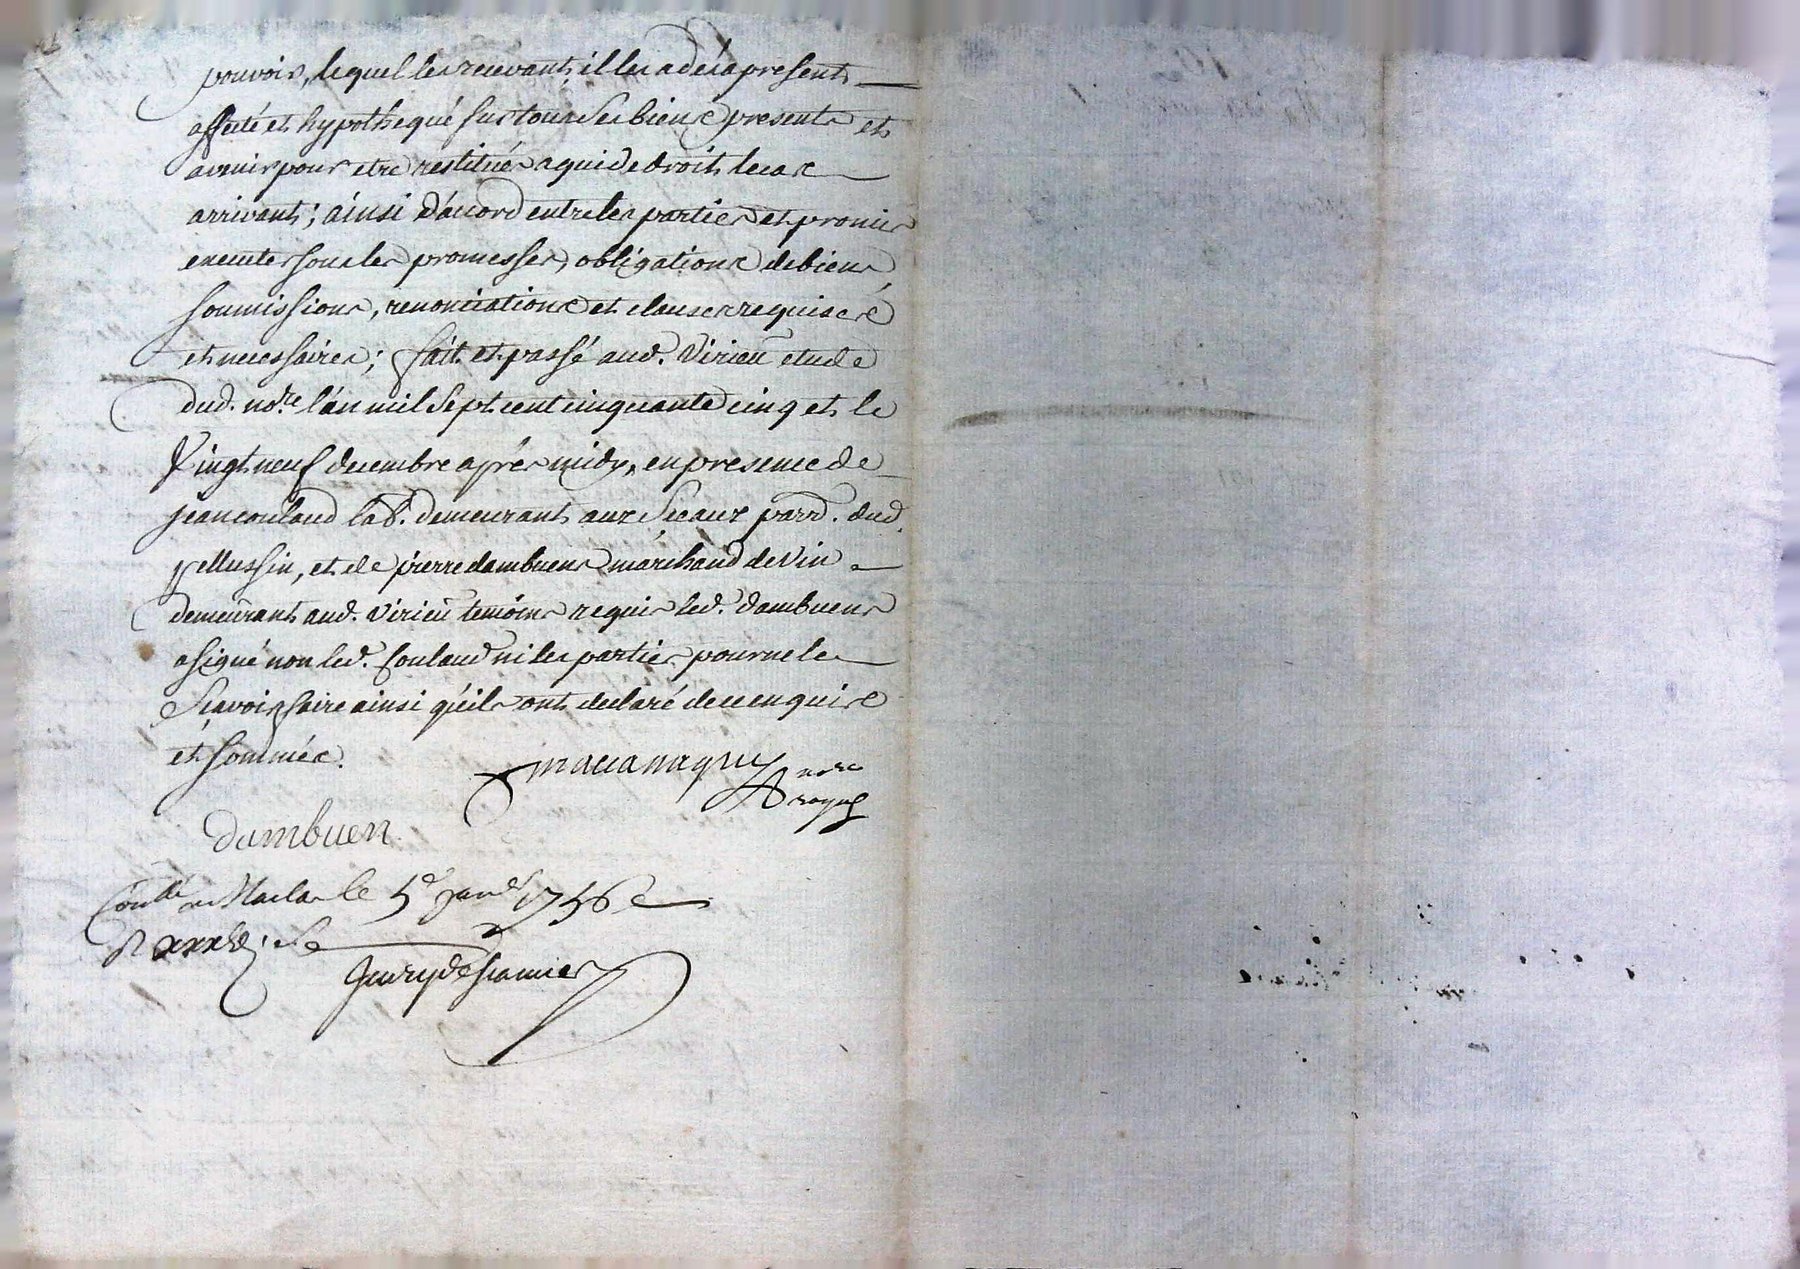 pouvoir, lequel les recevant il les a des a present
affecté et hypothequé sur tous ses biens presents et
avenir pour etre restitués a qui de droit le cas
arrivant; ainsi d'accord entre les parties et promis
executer sous les promesses, obligations de biens
soumissions, renonciations et clauses requises
et necessaires; fait et passé aud. Virieu etude
dud. no.re l'an mil sept cent cinquante cinq et le
Vingt neuf decembre apres midy, en presence de
jean couland lab.r demeurant aux Sceaux parr. dud.
pellussin, et de pierre dambuens marchand de vin
demeurant aud. virieu temoins requis led. dambuens
a signé non led. Couland ni les parties pour ne le
Sçavoir faire ainsi qu'ils ont declaré de ce enquis
et sommés.
no.re
royal
dambuen
Con.llé a Maclas le 5.e janv.r 1756
R